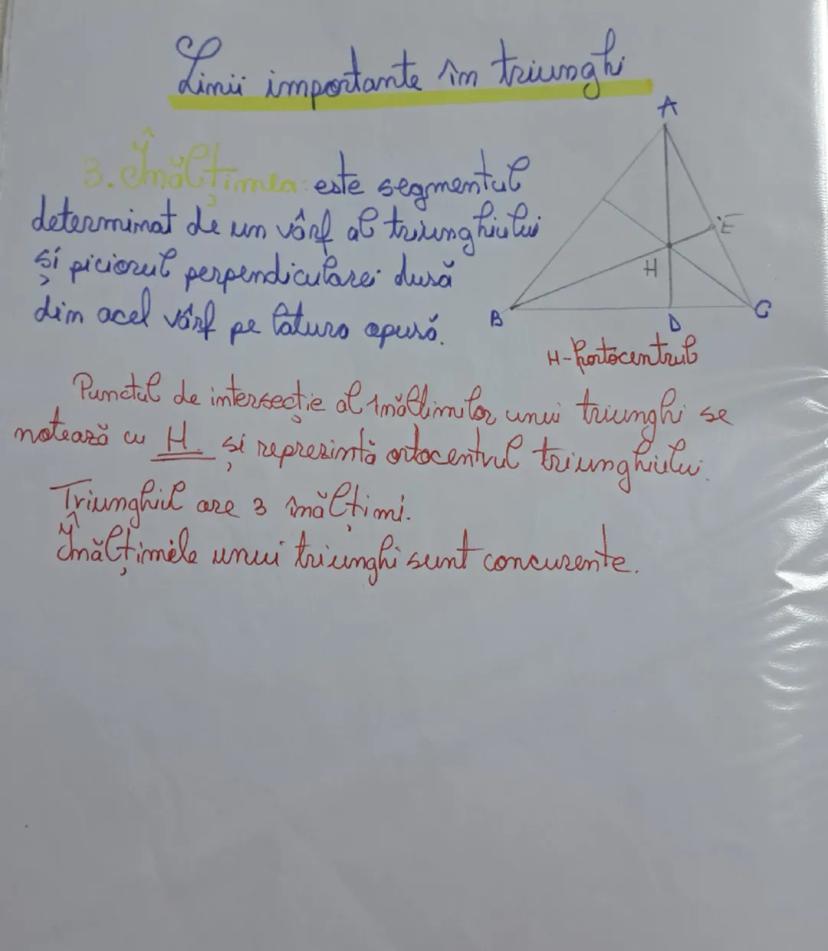 Linii importante în triunghi
3. Înălțimea: este segmentul
determinat de un vârf al triunghiului
și piciorul perpendicularei dusă
din acel vârf pe latura opusă.
A
E
H
B
D
C
H-hortocentrul
Punctul de intersecție al înălțimilor unui triunghi se
notează cu H. și reprezintă ortocentrul triunghiului.
Triunghiul are 3 înălțimi.
Înălțimile unui triunghi sunt concurente.